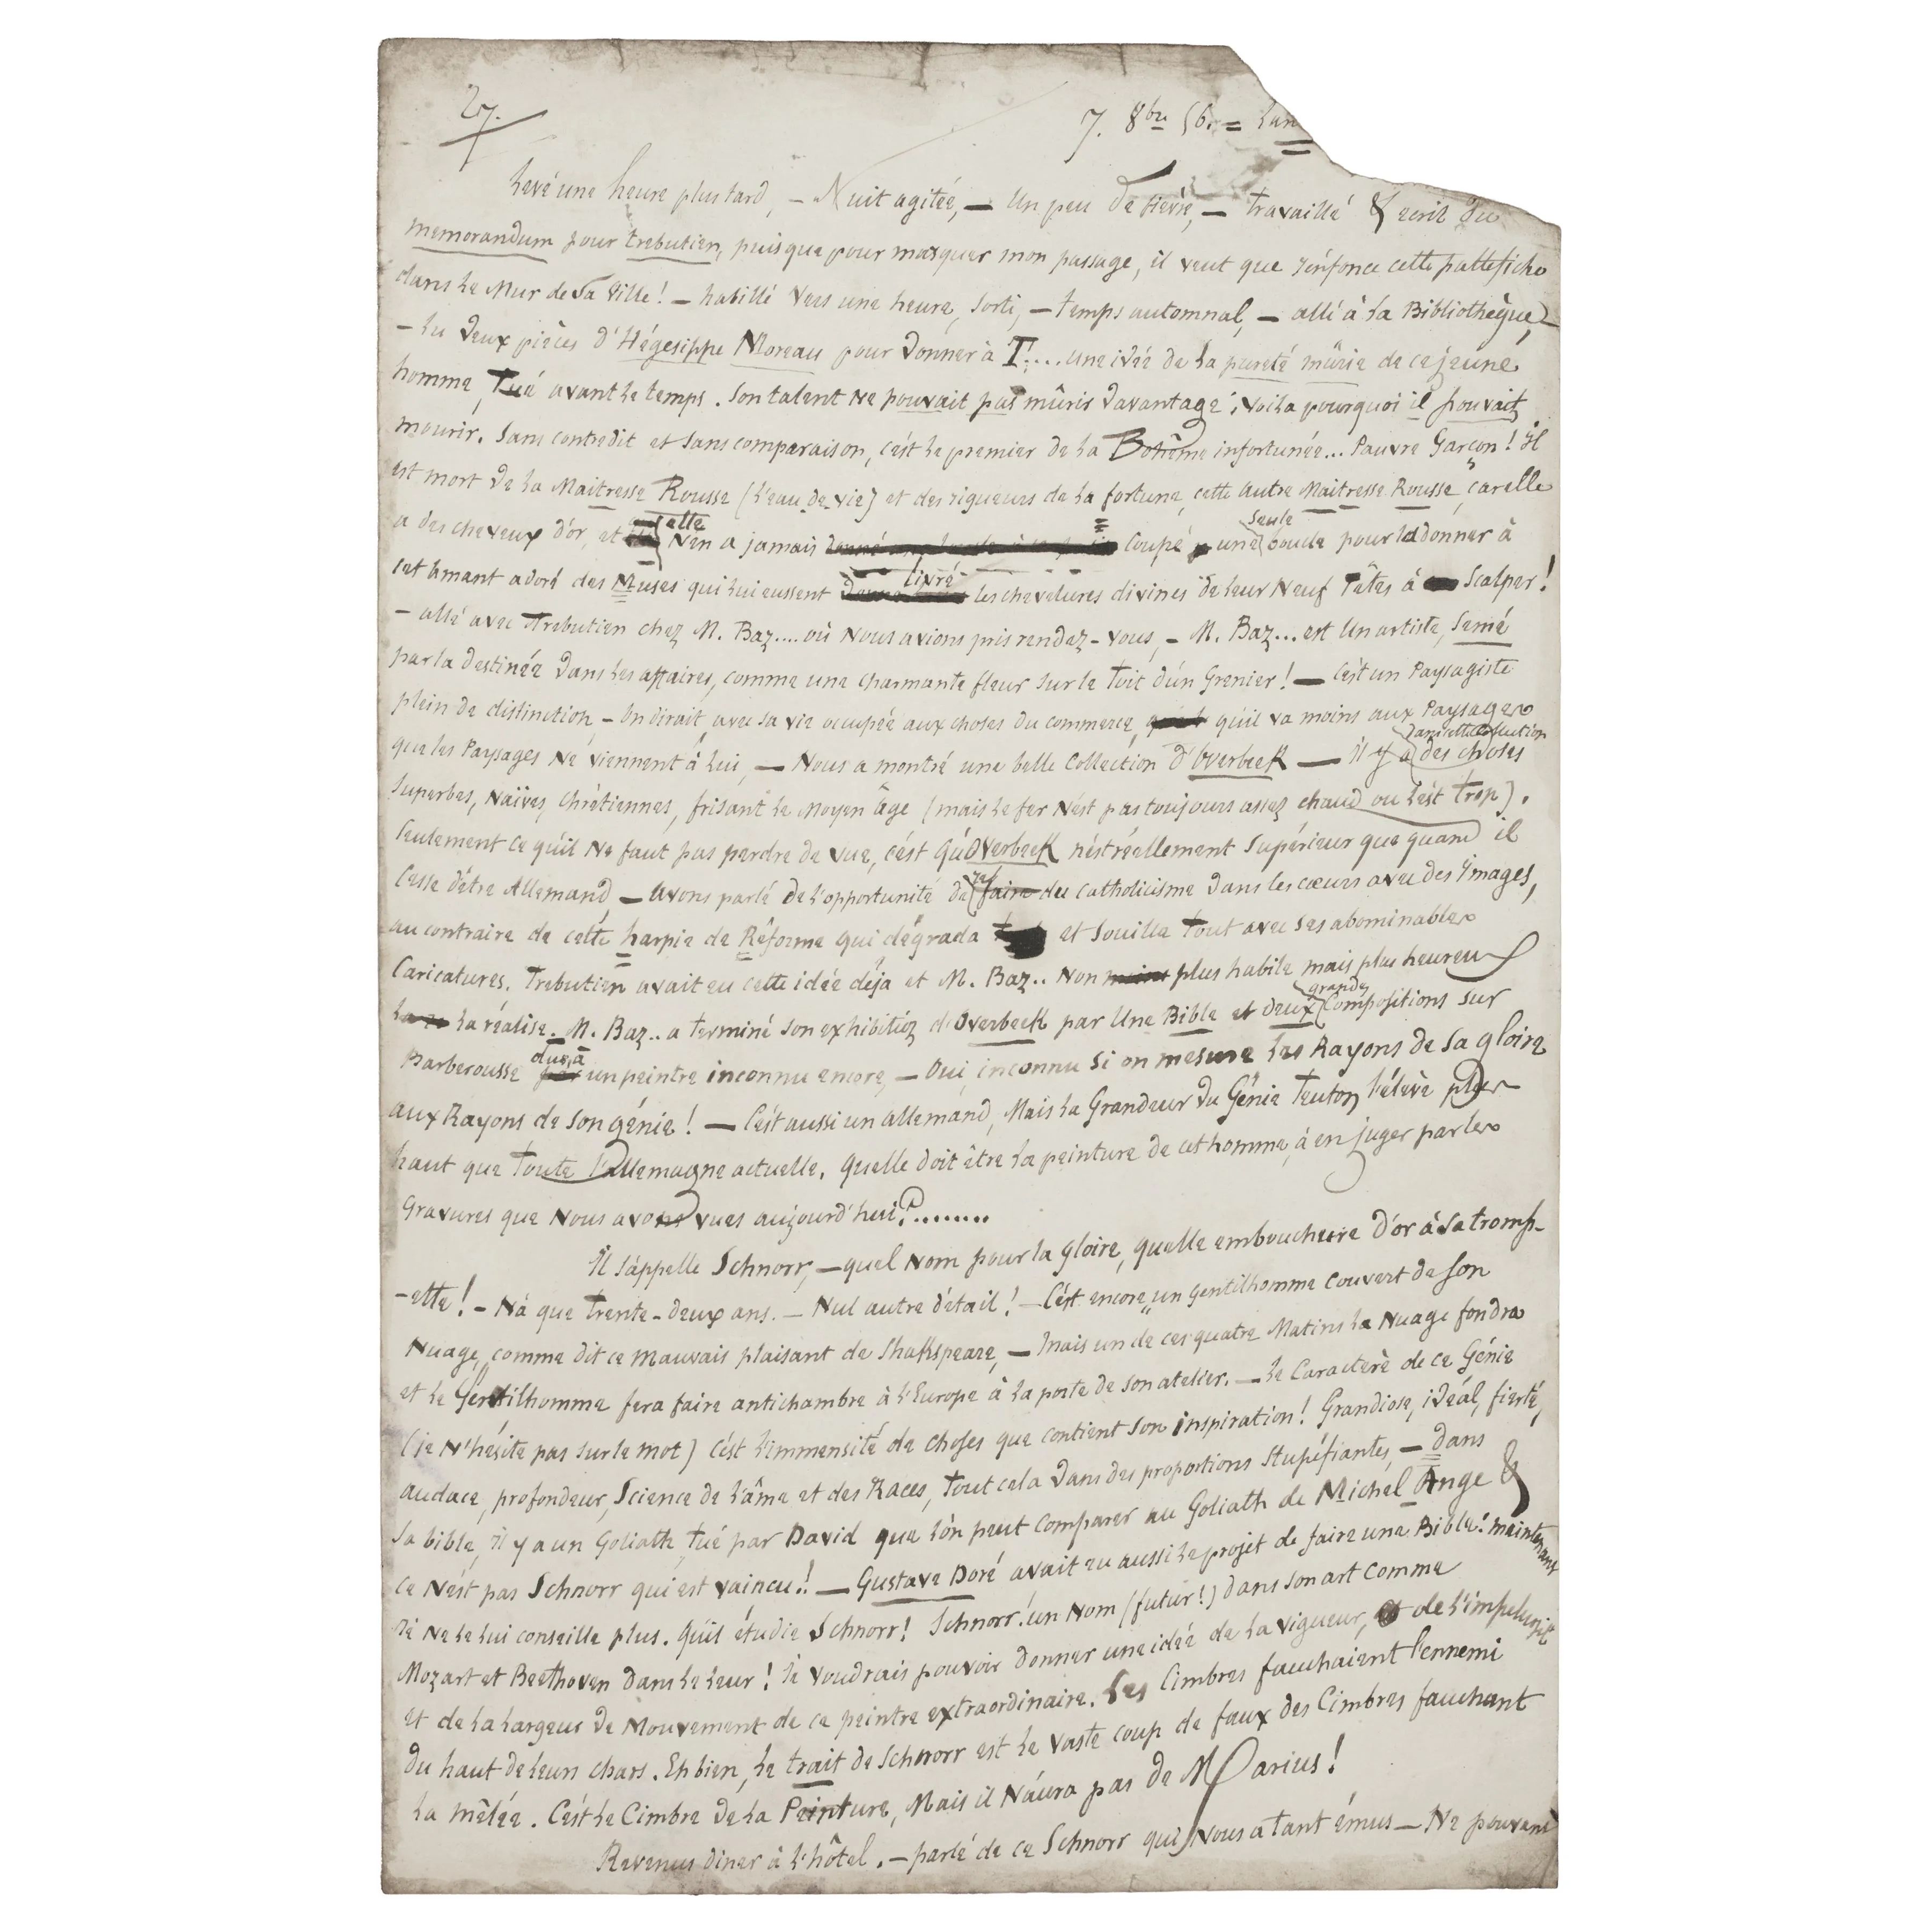 27.
7. 8bre 56. = Lun
Levé une heure plus tard, — Nuit agitée, — Un peu de fièvre, — travaillé & écrit du
memorandum pour Trebutien, puisque pour marquer mon passage, il veut que j'enfonce cette pattefiche
dans le Mur de sa Ville ! — habillé vers une heure, sorti, — temps automnal, — allé à la Bibliothèque, —
— lu deux pièces d'Hégésippe Moreau pour donner à T.... une idée de la pureté mûrie de ce jeune
homme, Tué avant le temps. Son talent ne pouvait pas mûrir davantage ; voilà pourquoi il pouvait
mourir. Sans contredit et sans comparaison, c'est le premier de la Bohême infortunée... Pauvre Garçon ! Il
est mort de la Maitresse Rousse (l'eau de vie) et des rigueurs de la fortune, cette autre Maitresse Rousse, car elle
a des cheveux d'or, et elle N'en a jamais coupé une seule boucle pour la donner à
cet Amant adoré des Muses qui lui eussent livré les chevelures divines de leur Neuf Têtes à Scalper !
— allé avec Trebutien chez M. Baz.... où Nous avions pris rendez-vous, — M. Baz... est Un artiste, Semé
par la destinée dans les affaires, comme une charmante fleur sur le toit d'un Grenier ! — C'est un Paysagiste
plein de distinction, — On dirait, avec sa vie occupée aux choses du commerce, qu'il va moins aux Paysages
que les Paysages Ne viennent à lui, — Nous a montré une belle Collection d'Overbeck — Il y a dans cette Collection des choses
Superbes, Naïves, Chrétiennes, frisant le Moyen âge (mais le fer N'est pas toujours assez chaud ou l'est trop).
Seulement ce qu'il Ne faut pas perdre de vue, c'est qu'Overbeck n'est réellement Supérieur que quand il
Cesse d'être Allemand, — Avons parlé de l'opportunité de refaire du catholicisme dans les cœurs avec des Images,
au contraire de cette harpie de Réforme qui dégrada et souilla tout avec ses abominables
Caricatures. Trebutien avait eu cette idée déja et M. Baz.. Non moins plus habile mais plus heureux
la réalise. M. Baz.. a terminé son exhibition d'Overbeck par Une Bible et deux grandes Compositions sur
Barberousse dues à un peintre inconnu encore, — Oui, inconnu si on mesure les Rayons de sa gloire
aux Rayons de son génie ! — C'est aussi un allemand, Mais la Grandeur du Génie Teuton l'élève plus
haut que toute l'Allemagne actuelle. Quelle doit être la peinture de cet homme, à en juger par les
Gravures que Nous avons vues aujourd'hui ?........
Il s'appelle Schnorr, — quel Nom pour la gloire, quelle embouchure d'or à sa tromp-
-ette ! — N'a que Trente-deux ans. — Nul autre détail ! — C'est encore "un Gentilhomme couvert de son
Nuage," comme dit ce mauvais plaisant de Shakspeare, — Mais un de ces quatre Matins le Nuage fondra
et le Gentilhomme fera faire antichambre à l'Europe à la porte de son atelier. — Le Caractère de ce Génie
(je N'hésite pas sur le mot) C'est l'immensité de choses que contient son inspiration ! Grandiose, idéal, fierté,
audace, profondeur, Science de l'âme et des Races, Tout cela dans des proportions Stupéfiantes, — dans
Sa bible, il y a un Goliath, tué par David que l'on peut comparer au Goliath de Michel Ange &
ce N'est pas Schnorr qui est vaincu !! — Gustave Doré avait eu aussi le projet de faire une Bible ! maintenant
je Ne le lui conseille plus. Qu'il étudie Schnorr ! Schnorr ! un Nom (futur !) dans son art comme
Mozart et Beethoven dans le leur ! Je voudrais pouvoir donner une idée de la vigueur, de l'impétuosité
et de la largeur de Mouvement de ce peintre extraordinaire. Les Cimbres fauchaient l'ennemi
du haut de leurs chars. Eh bien, le trait de Schnorr est le vaste coup de faux des Cimbres fauchant
la mêlée. C'est le Cimbre de la Peinture, Mais il N'aura pas de Marius !
Revenus diner à l'hôtel. — parlé de ce Schnorr qui Nous a tant émus — Ne pouvant